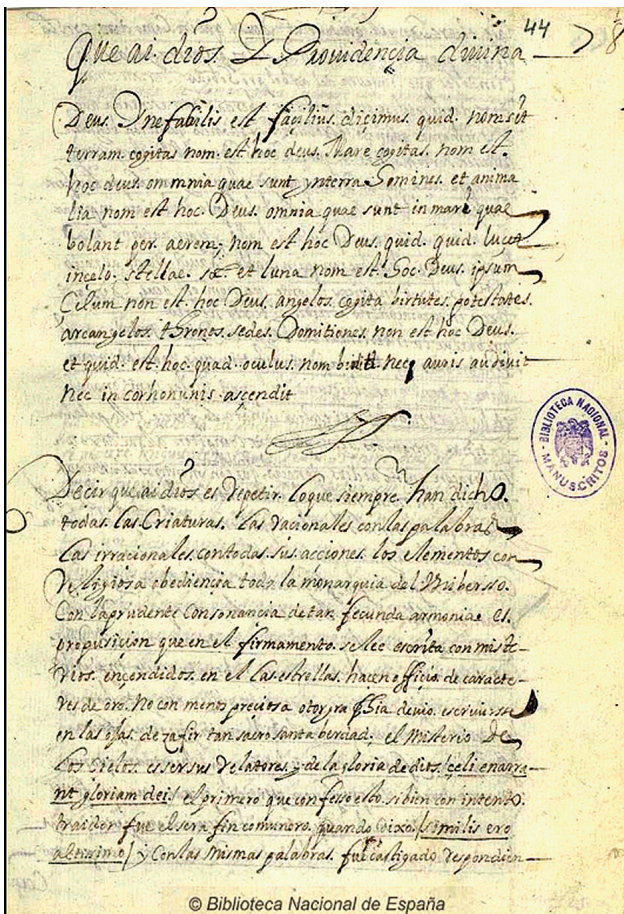 44
Que ai dios. I Providencia divina
Deus. Inefabilis est façilius. diçimus. quid. nom sit
terram. cogitas nom. est hoc deus. Mare cogitas. nom est.
hoc deus. ommnia quae sunt ynterra. Homines. et anima
lia nom est hoc. Deus. omnia quae sunt in mari quae
bolant per. aerem, nom est hoc Deus. quid. quid. lucet
inçelo. stellae. sol et luna nom est. Hoc. Deus. ipsum
Celum non est. hoc Deus. angelos. cogita birtutes. potestates.
arcangelos. thronos. sedes. Domitiones. non est hoc Deus.
et quid. est. hoc. quad. oculus. nom bidit. nec auris audivit
nec in corhonunis. asçendit
Decir que ai dios es Repetir. loque siempre. han dicho.
todas. las Criaturas. las racionales con las palabras
las irracionales. contodas. sus. acciones. los elementos con
Religiosa obediencia toda la monarquia del Uniberso.
Con laprudente Consonancia de tan fecunda armonia es.
propusicion que en el firmamento. se lee escrita con miste-
rios. ençendidos. en el las. estrellas. haçen offiçio. de caracte-
res de oro. No con menos preçiosa otorgra phia devio. escrivirsse
en las ojas. de zafir tan sacro santa berdad; el Misterio de
los Cielos. es ser sus Relatores. y de la gloria de dios. /çeli enarra-
nt gloriam dei/ el primero que confeso esto. si bien con intento.
traidor fue el sera fin comunero. quando Dixo. /similis ero
altisimo/ y Con las Mismas palabras. fue castigado Respondien-
BIBLIOTECA NACIONAL
MANUSCRITOS
© Biblioteca Nacional de España